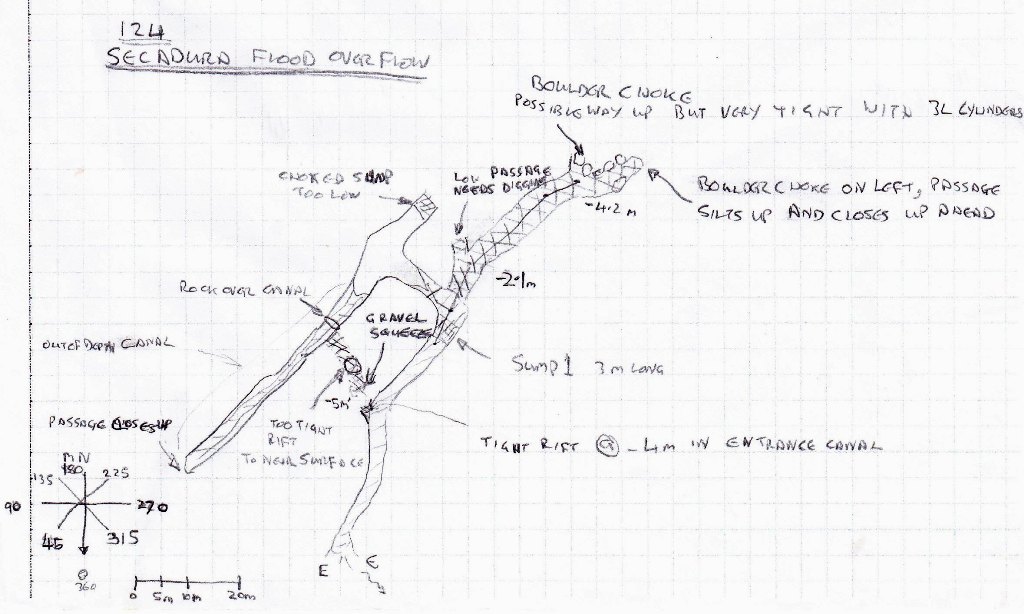 124
SECADURA FLOOD OVERFLOW
BOULDER CHOKE
POSSIBLE WAY UP BUT VERY TIGHT WITH 3L CYLINDERS
CHOKED SUMP
TOO LOW
LOW PASSAGE
NEEDS DIGGING
BOULDER CHOKE ON LEFT, PASSAGE
SILTS UP AND CLOSES UP AHEAD
-4.2m
-2.1m
ROCK OVER CANAL
GRAVEL
SQUEEZE
OUT OF DEPTH CANAL
SUMP 1 3m LONG
-5m
PASSAGE CLOSES UP
TOO TIGHT
RIFT
TO NEAR SURFACE
TIGHT RIFT @ -4m IN ENTRANCE CANAL
MN
180
135
225
90
270
45
315
0
360
E
E
0 5m 10m 20m